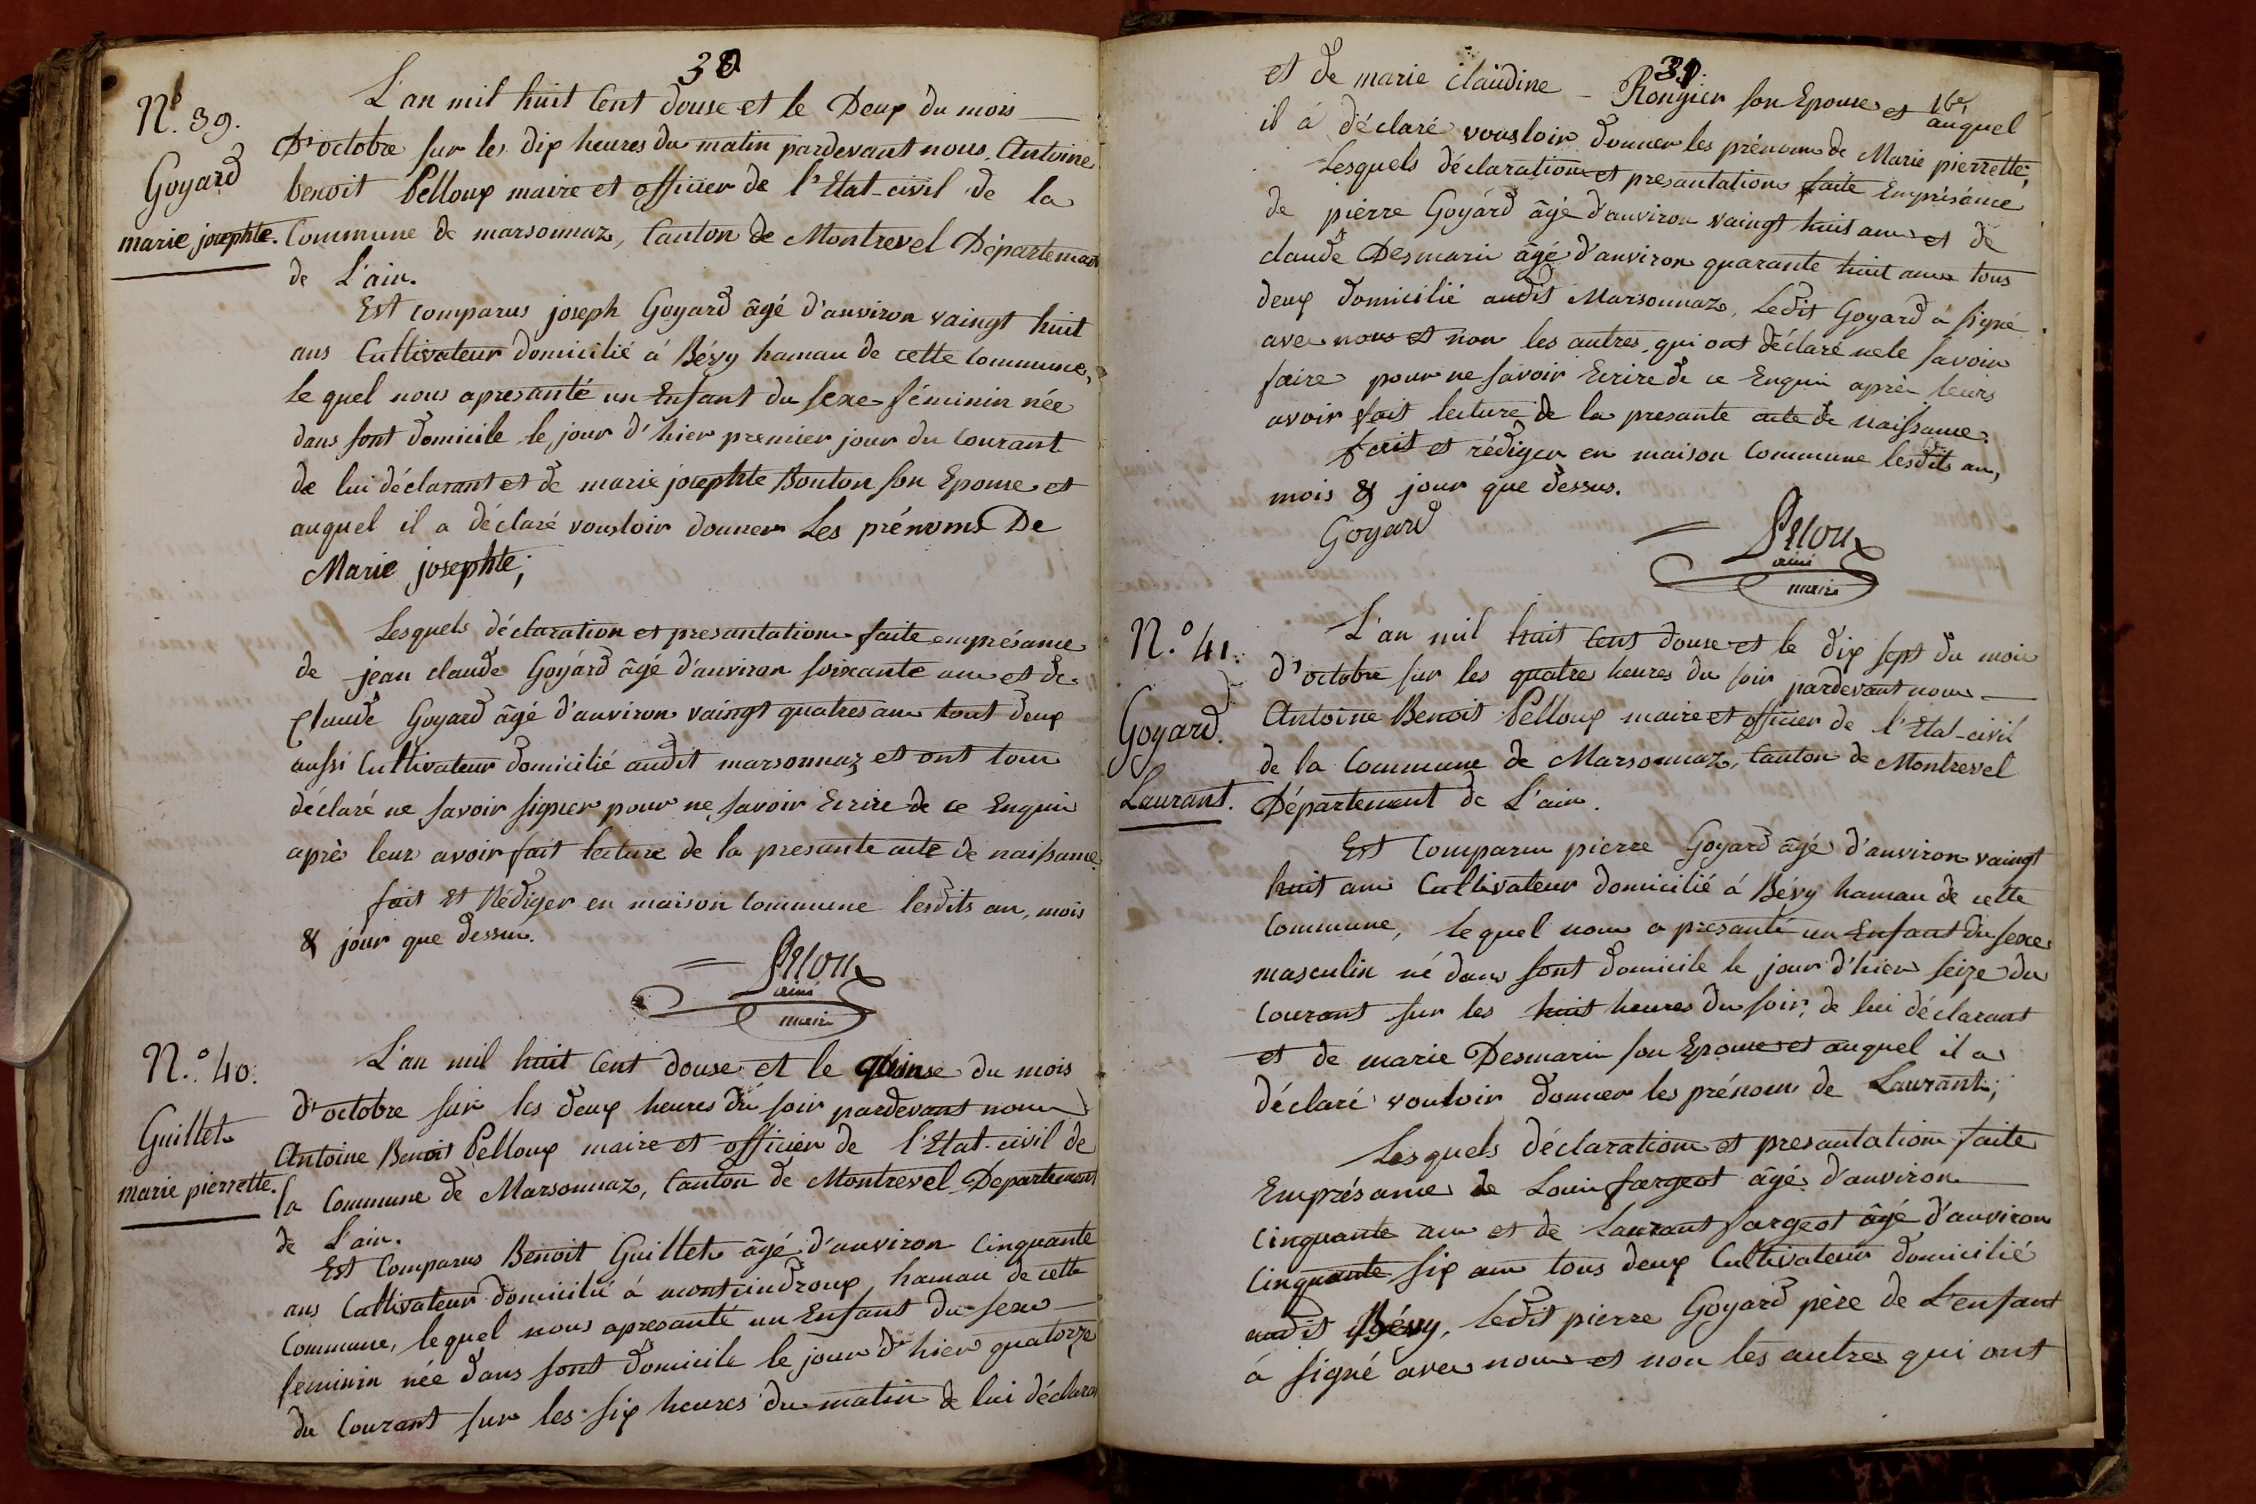 30
N.º 39.
Goyard
marie josephte.
L'an mil huit Cent douse et le Deux du mois
D'octobre sur les dix heures du matin pardevant nous, Antoine
benoit Pelloux maire et officier de l'Etat-civil de la
Commune de marsonnaz, Canton de Montrevel Départeman
de L'ain.
Est comparus joseph Goyard âgé d'anviron vaingt huit
ans Cultivateur domicilié á Bévy haman de cette Commune,
le quel nous apresanté un Enfant du sexe féminin née
dans sont domicile le jour d'hier premier jour du Courant
de lui déclarant et de marie josephte Bouton son Epouse et
auquel il a déclaré vousloir donner Les prénoms De
Marie josephte;
Lesquels déclaration et presantation faite emprésance
de jean claude Goyard âgé d'anviron soixante ans et de
Claude Goyard âgé d'anviron vaingt quatres ans tout deux
aussi Cultivateur domicilié audit marsonnaz et ont tous
déclaré ne savoir signer pour ne savoir Ecrire de ce Enquis
après leur avoir fait lecture de la presante acte de naissance.
fait et Rédiger en maison Commune lesdits an, mois
& jour que dessus.
Pelloux
ainé
maire
N.º 40.
Guillet
marie pierrette.
L'an mil huit Cent douse et le quinse du mois
d'octobre sur les deux heures du soir pardevant nous
Antoine Benoit Pelloux maire et officier de l'Etat-civil de
la Commune de Marsonnaz, Canton de Montrevel Departement
de L'ain.
Est Comparus Benoit Guillet âgé d'anviron Cinquante
ans Cultivateur domicilié á montcindroux, haman de cette
Commune, lequel nous apresanté un Enfant du sexe
feminin née dans sont domicile le jour d'hier quatorze
du Courant sur les six heures du matin de lui déclaran
31
et de marie claudine Rongier son Epouse et auquel
il á déclaré vousloir donner les prénoms de Marie pierrette,
Lesquels déclaration et presantation faite Emprésance
de pierre Goyard âgé d'anviron vaingt huit ans et de
claude Desmaris âgé d'anviron quarante huit ans tous
deux domicilié audit Marsonnaz, Ledit Goyard á signé
avec nous et non les autres, qui ont déclaré ne le savoir
faire pour ne savoir Ecrire de ce Enquis après leurs
avoir fait lecture de la presante acte de naissance.
fait et rédiger en maison Commune lesdits an,
mois & jour que dessus.
Goyard
Pelloux
ainé
maire
N.º 41.
Goyard.
Laurant.
L'an mil huit Cent douse et le dix sept du mois
d'octobre sur les quatre heures du soir pardevant nous
Antoine Benoit Pelloux maire et officier de l'Etat-civil
de la Commune de Marsonnaz, Canton de Montrevel
Département de L'ain.
Est Comparus pierre Goyard âgé d'anviron vaingt
huit ans Cultivateur domicilié á Bévy haman de cette
Commune, lequel nous a presanté un Enfant du sexe
masculin né dans sont domicile le jour d'hier seize du
Courant sur les huit heures du soir, de lui déclarant
et de marie Desmaris son Epouse et auquel il a
déclaré vouloir donner les prénoms de Laurant;
Lesquels déclaration et presantation faite
Emprésance de Louis fargeot âgé d'anviron
Cinquante ans et de Laurant fargeot âgé d'anviron
Cinquante six ans tous deux Cultivateur domicilié
audit Bévy, ledit pierre Goyard père de L'enfant
á signé avec nous et non les autres qui ont